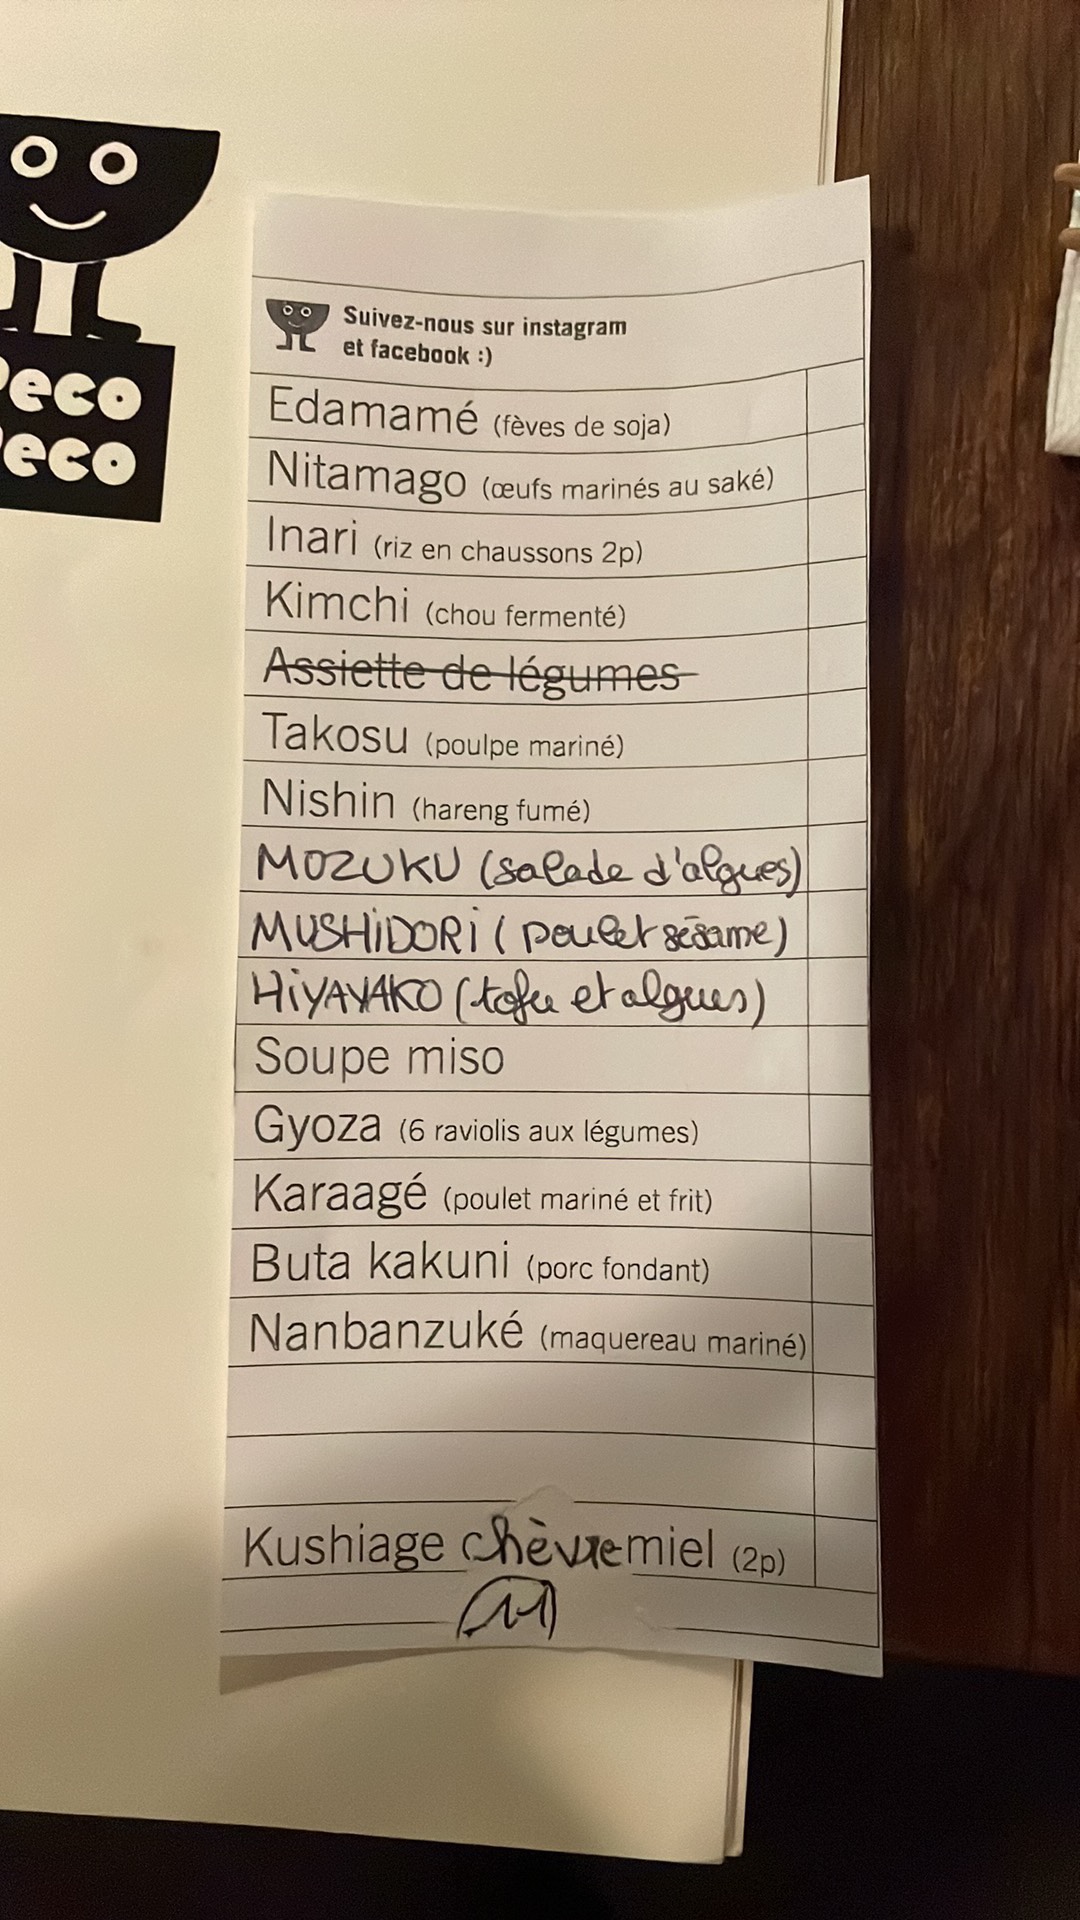 eco
eco
Suivez-nous sur instagram
et facebook :)
Edamamé (fèves de soja)
Nitamago (œufs marinés au saké)
Inari (riz en chaussons 2p)
Kimchi (chou fermenté)
Assiette de légumes
Takosu (poulpe mariné)
Nishin (hareng fumé)
MOZUKU (salade d'algues)
MUSHiDORi (poulet sésame)
HiYAYAKO (tofu et algues)
Soupe miso
Gyoza (6 raviolis aux légumes)
Karaagé (poulet mariné et frit)
Buta kakuni (porc fondant)
Nanbanzuké (maquereau mariné)
Kushiage chèvre miel (2p)